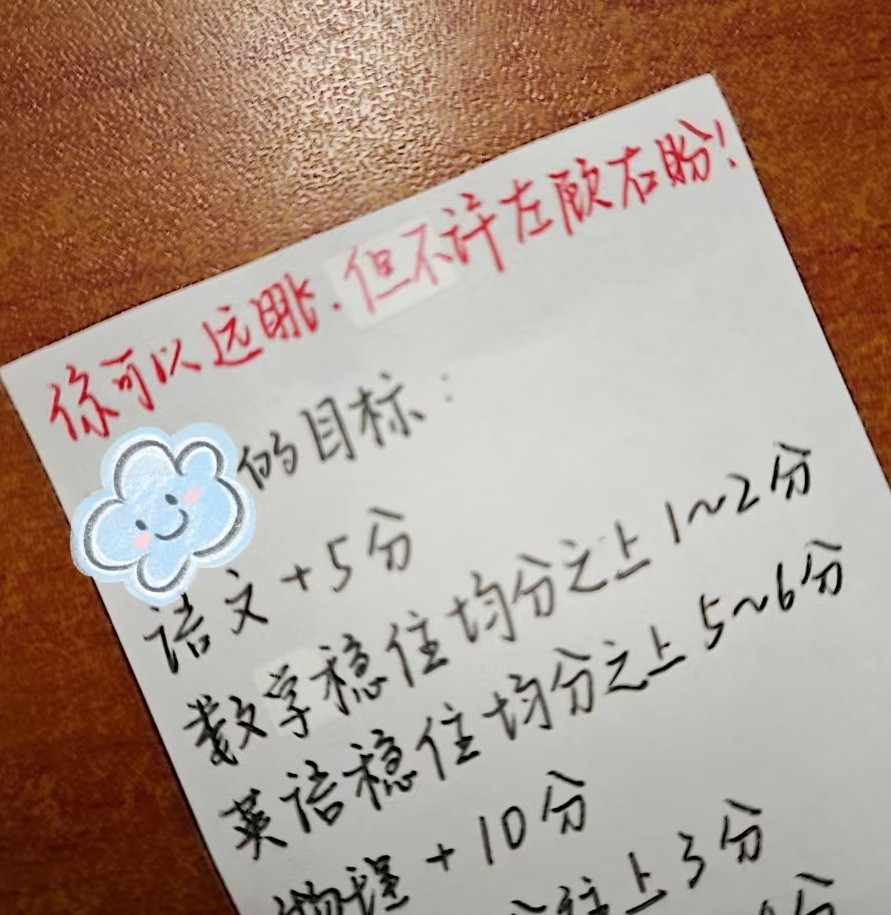 你可以远眺.但不许左顾右盼!
的目标:
语文+5分
数学稳住均分之上1~2分
英语稳住均分之上5~6分
物理+10分
往上3分
分